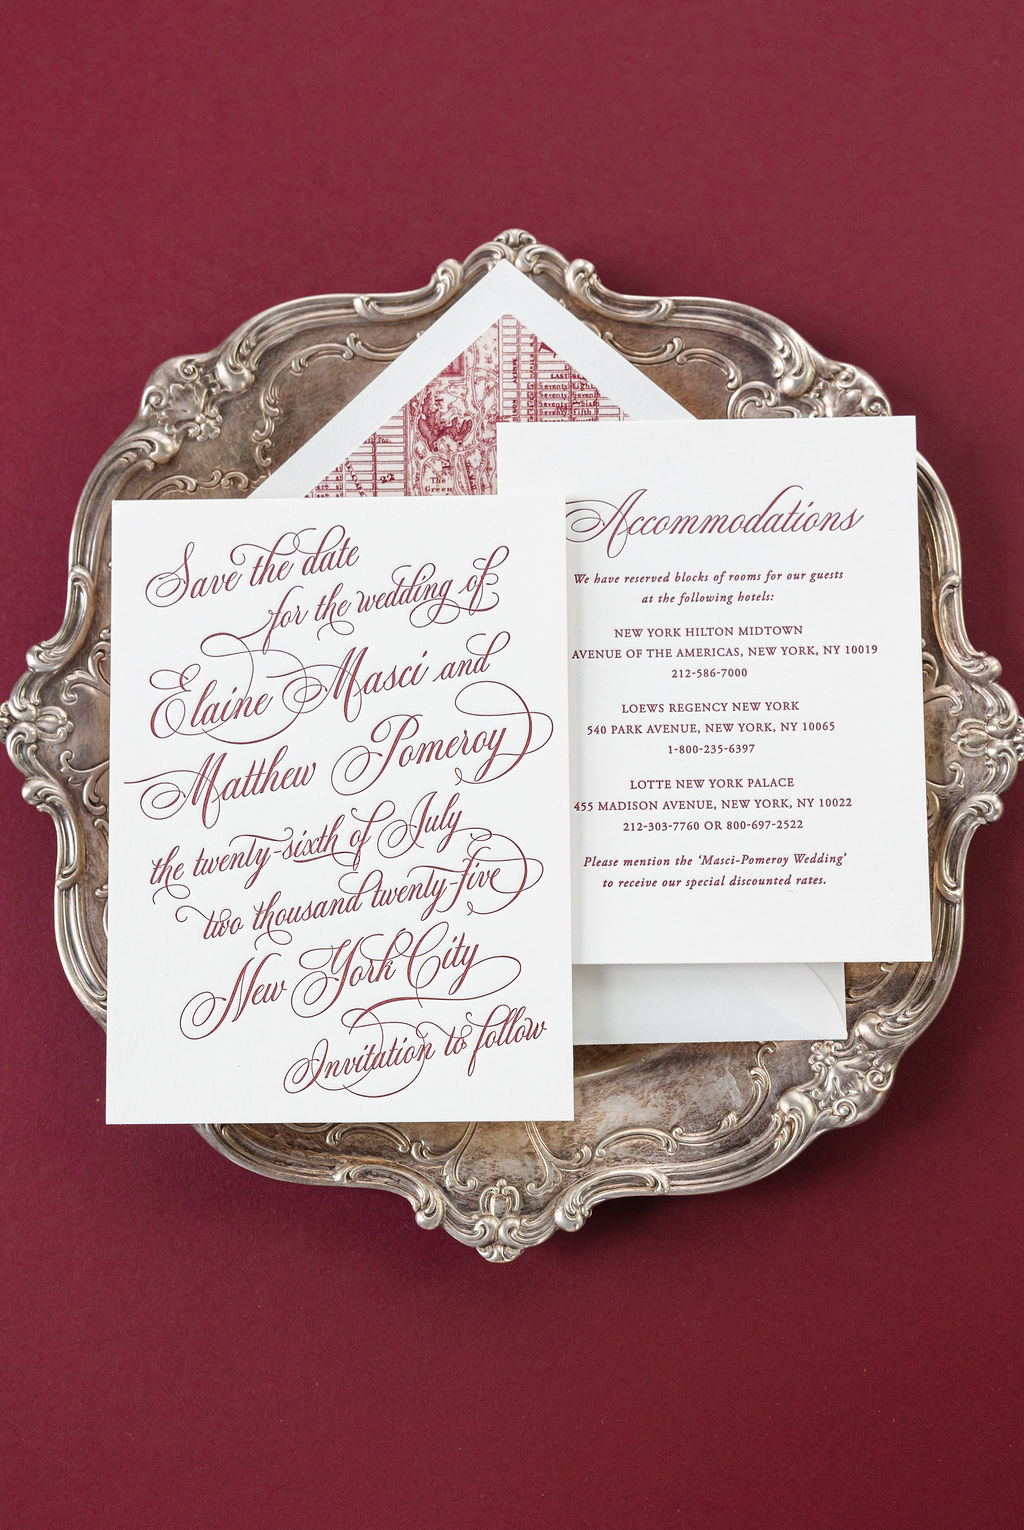 Save the date
for the wedding of
Elaine Masci and
Matthew Pomeroy
the twenty-sixth of July
two thousand twenty-five
New York City
Invitation to follow
Accommodations
We have reserved blocks of rooms for our guests
at the following hotels:
NEW YORK HILTON MIDTOWN
AVENUE OF THE AMERICAS, NEW YORK, NY 10019
212-586-7000
LOEWS REGENCY NEW YORK
540 PARK AVENUE, NEW YORK, NY 10065
1-800-235-6397
LOTTE NEW YORK PALACE
455 MADISON AVENUE, NEW YORK, NY 10022
212-303-7760 OR 800-697-2522
Please mention the ‘Masci-Pomeroy Wedding’
to receive our special discounted rates.
EAST
Seventy Eighth
Seventy Seventh
Seventy Sixth
Seventy Fifth
Seventy Fourth
22
The
Green